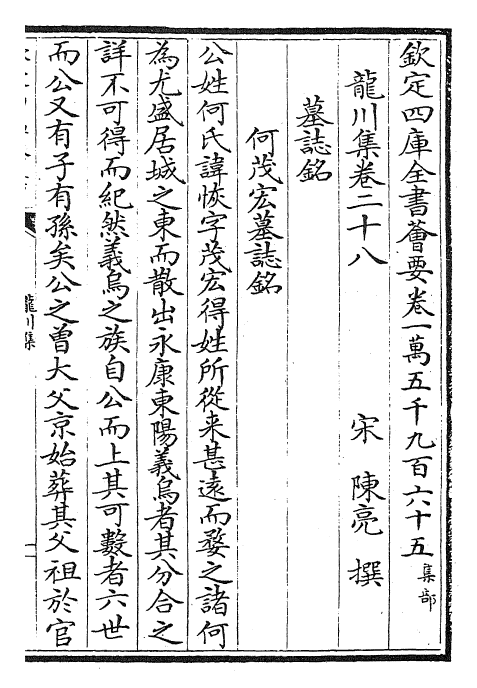 欽定四庫全書薈要卷一萬五千九百六十五集部
龍川集卷二十八
宋 陳亮 撰
墓誌銘
何茂宏墓誌銘
公姓何氏諱恢字茂宏得姓所從来甚逺而婺之諸何
為尤盛居城之東而散出永康東陽義烏者其分合之
詳不可得而紀然義烏之族自公而上其可數者六世
而公又有子有孫矣公之曽大父京始葬其父祖於官
龍川集
一